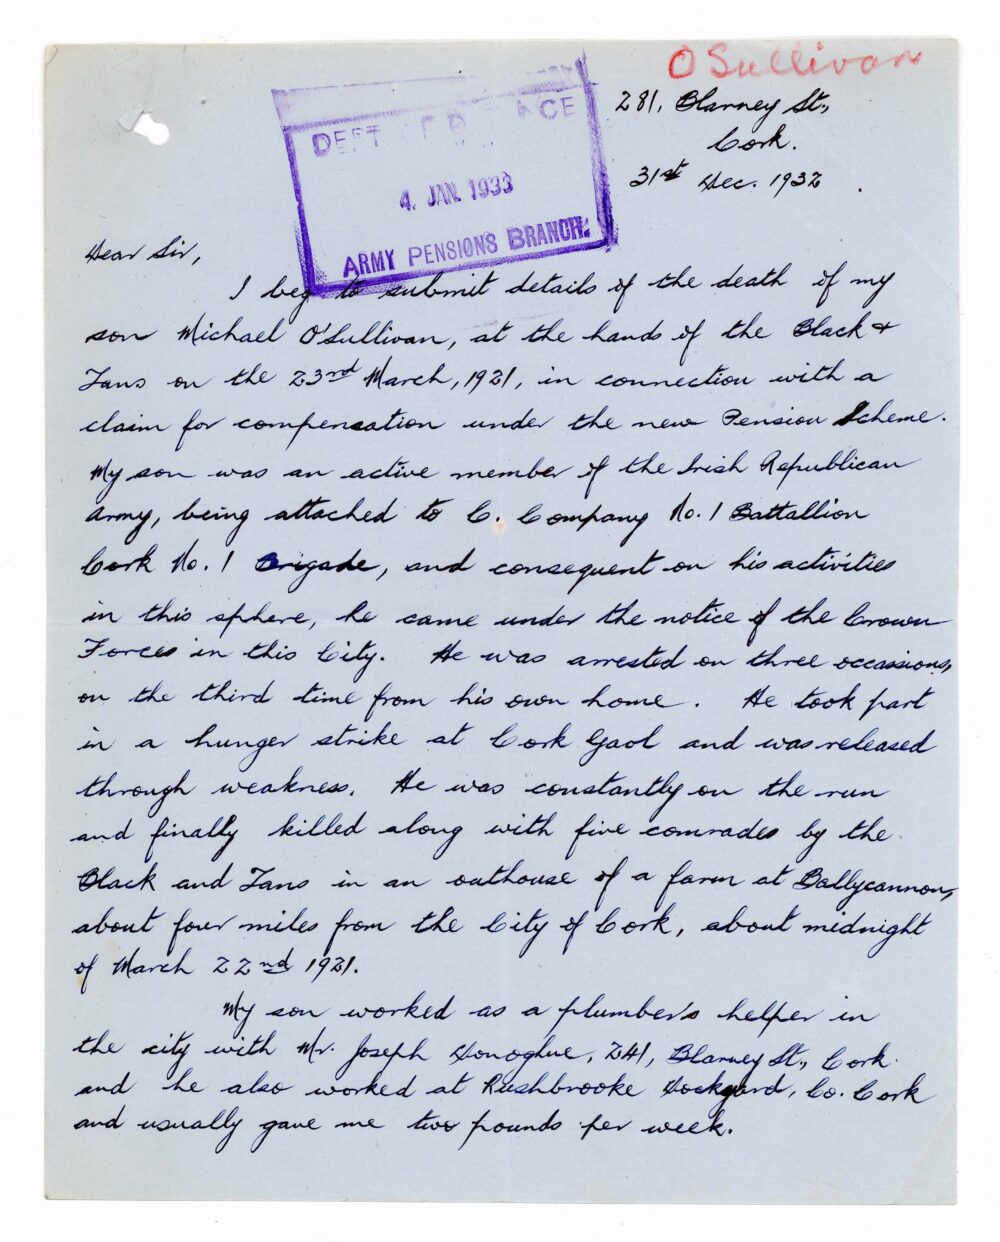 O Sullivan
281, Blarney St.,
Cork.
31st Dec. 1932.
DEPT
4. JAN. 1933
ARMY PENSIONS BRANCH.
Dear Sir,
I beg to submit details of the death of my
son Michael O'Sullivan, at the hands of the Black &
Tans on the 23rd March, 1921, in connection with a
claim for compensation under the new Pension Scheme.
My son was an active member of the Irish Republican
Army, being attached to C. Company No. 1 Battallion
Cork No. 1 Brigade, and consequent on his activities
in this sphere, he came under the notice of the Crown
Forces in this City. He was arrested on three occassions,
on the third time from his own home. He took part
in a hunger strike at Cork Gaol and was released
through weakness. He was constantly on the run
and finally killed along with five comrades by the
Black and Tans in an outhouse of a farm at Ballycannon,
about four miles from the City of Cork, about midnight
of March 22nd 1921.
My son worked as a plumber's helper in
the city with Mr. Joseph Donoghue, 241, Blarney St., Cork.
and he also worked at Rushbrooke Dockyard, Co. Cork
and usually gave me two pounds per week.